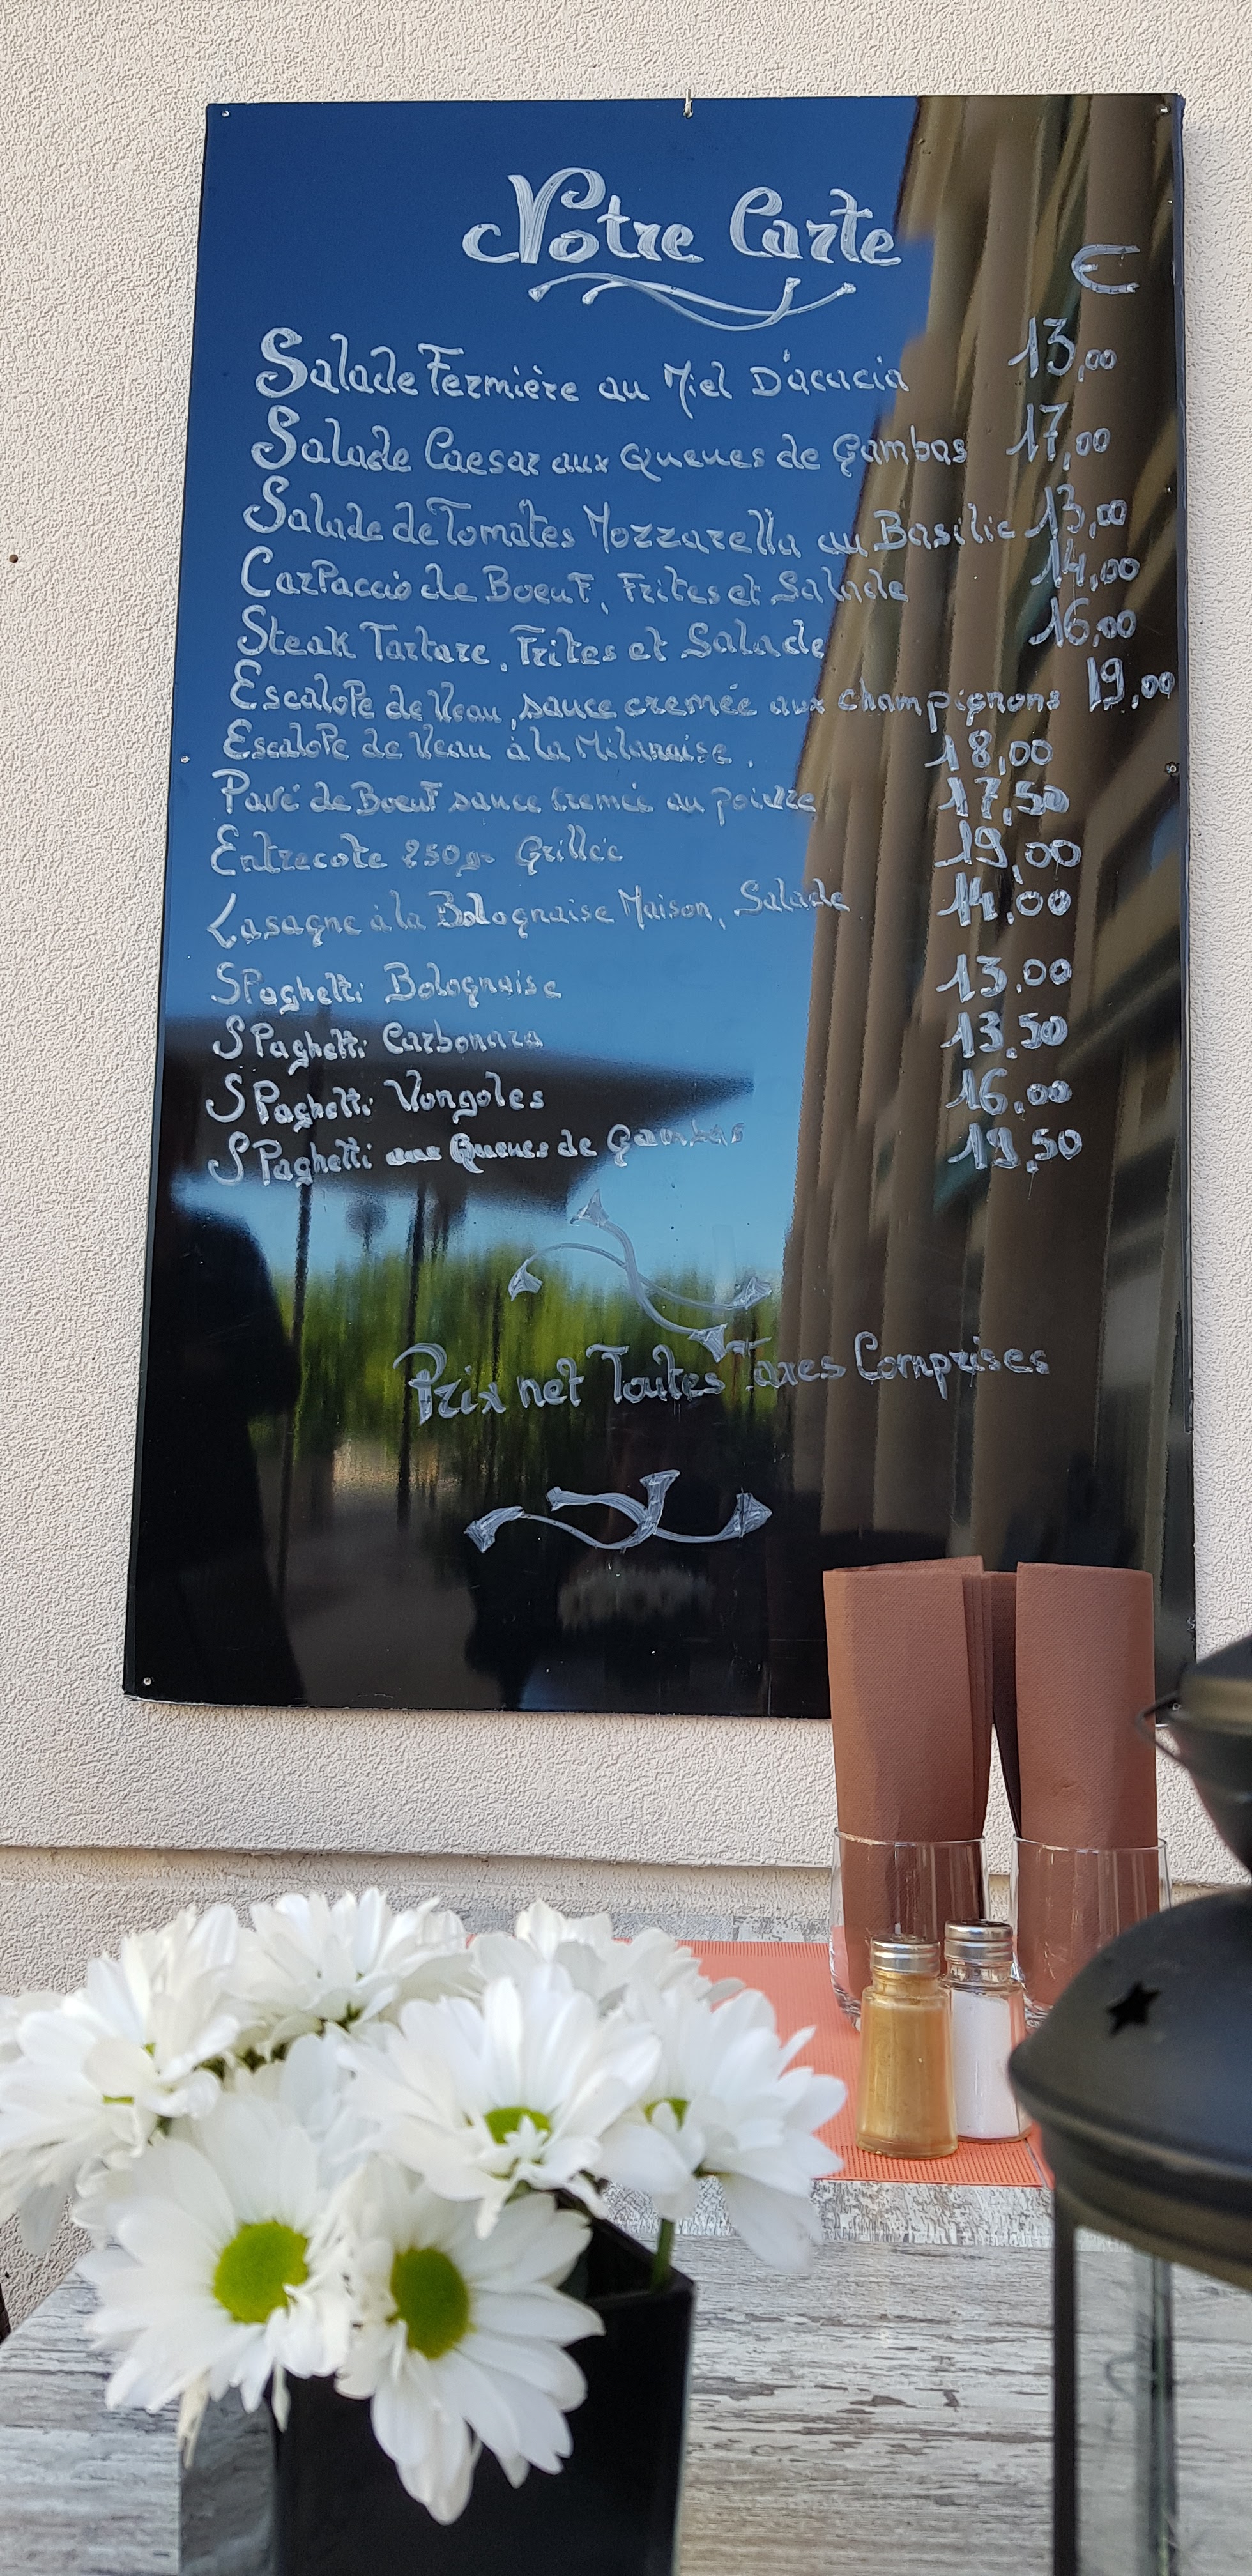 Notre Carte
€
Salade Fermière au Miel D'acacia 13,00
Salade Caesar aux Queues de Gambas 17,00
Salade de Tomates Mozzarella au Basilic 13,00
Carpaccio de Boeuf, Frites et Salade 14,00
Steak Tartare, Frites et Salade 16,00
Escalope de Veau, sauce cremée aux champignons 19,00
Escalope de Veau à la Milanaise. 18,00
Pavé de Boeuf sauce Cremée au poivre 17,50
Entrecote 250gr Grillée 19,00
Lasagne à la Bolognaise Maison, Salade 14,00
Spaghetti Bolognaise 13.00
Spaghetti Carbonara 13.50
Spaghetti Vongoles 16,00
Spaghetti aux Queues de Gambas 19,50
Prix net Toutes Taxes Comprises